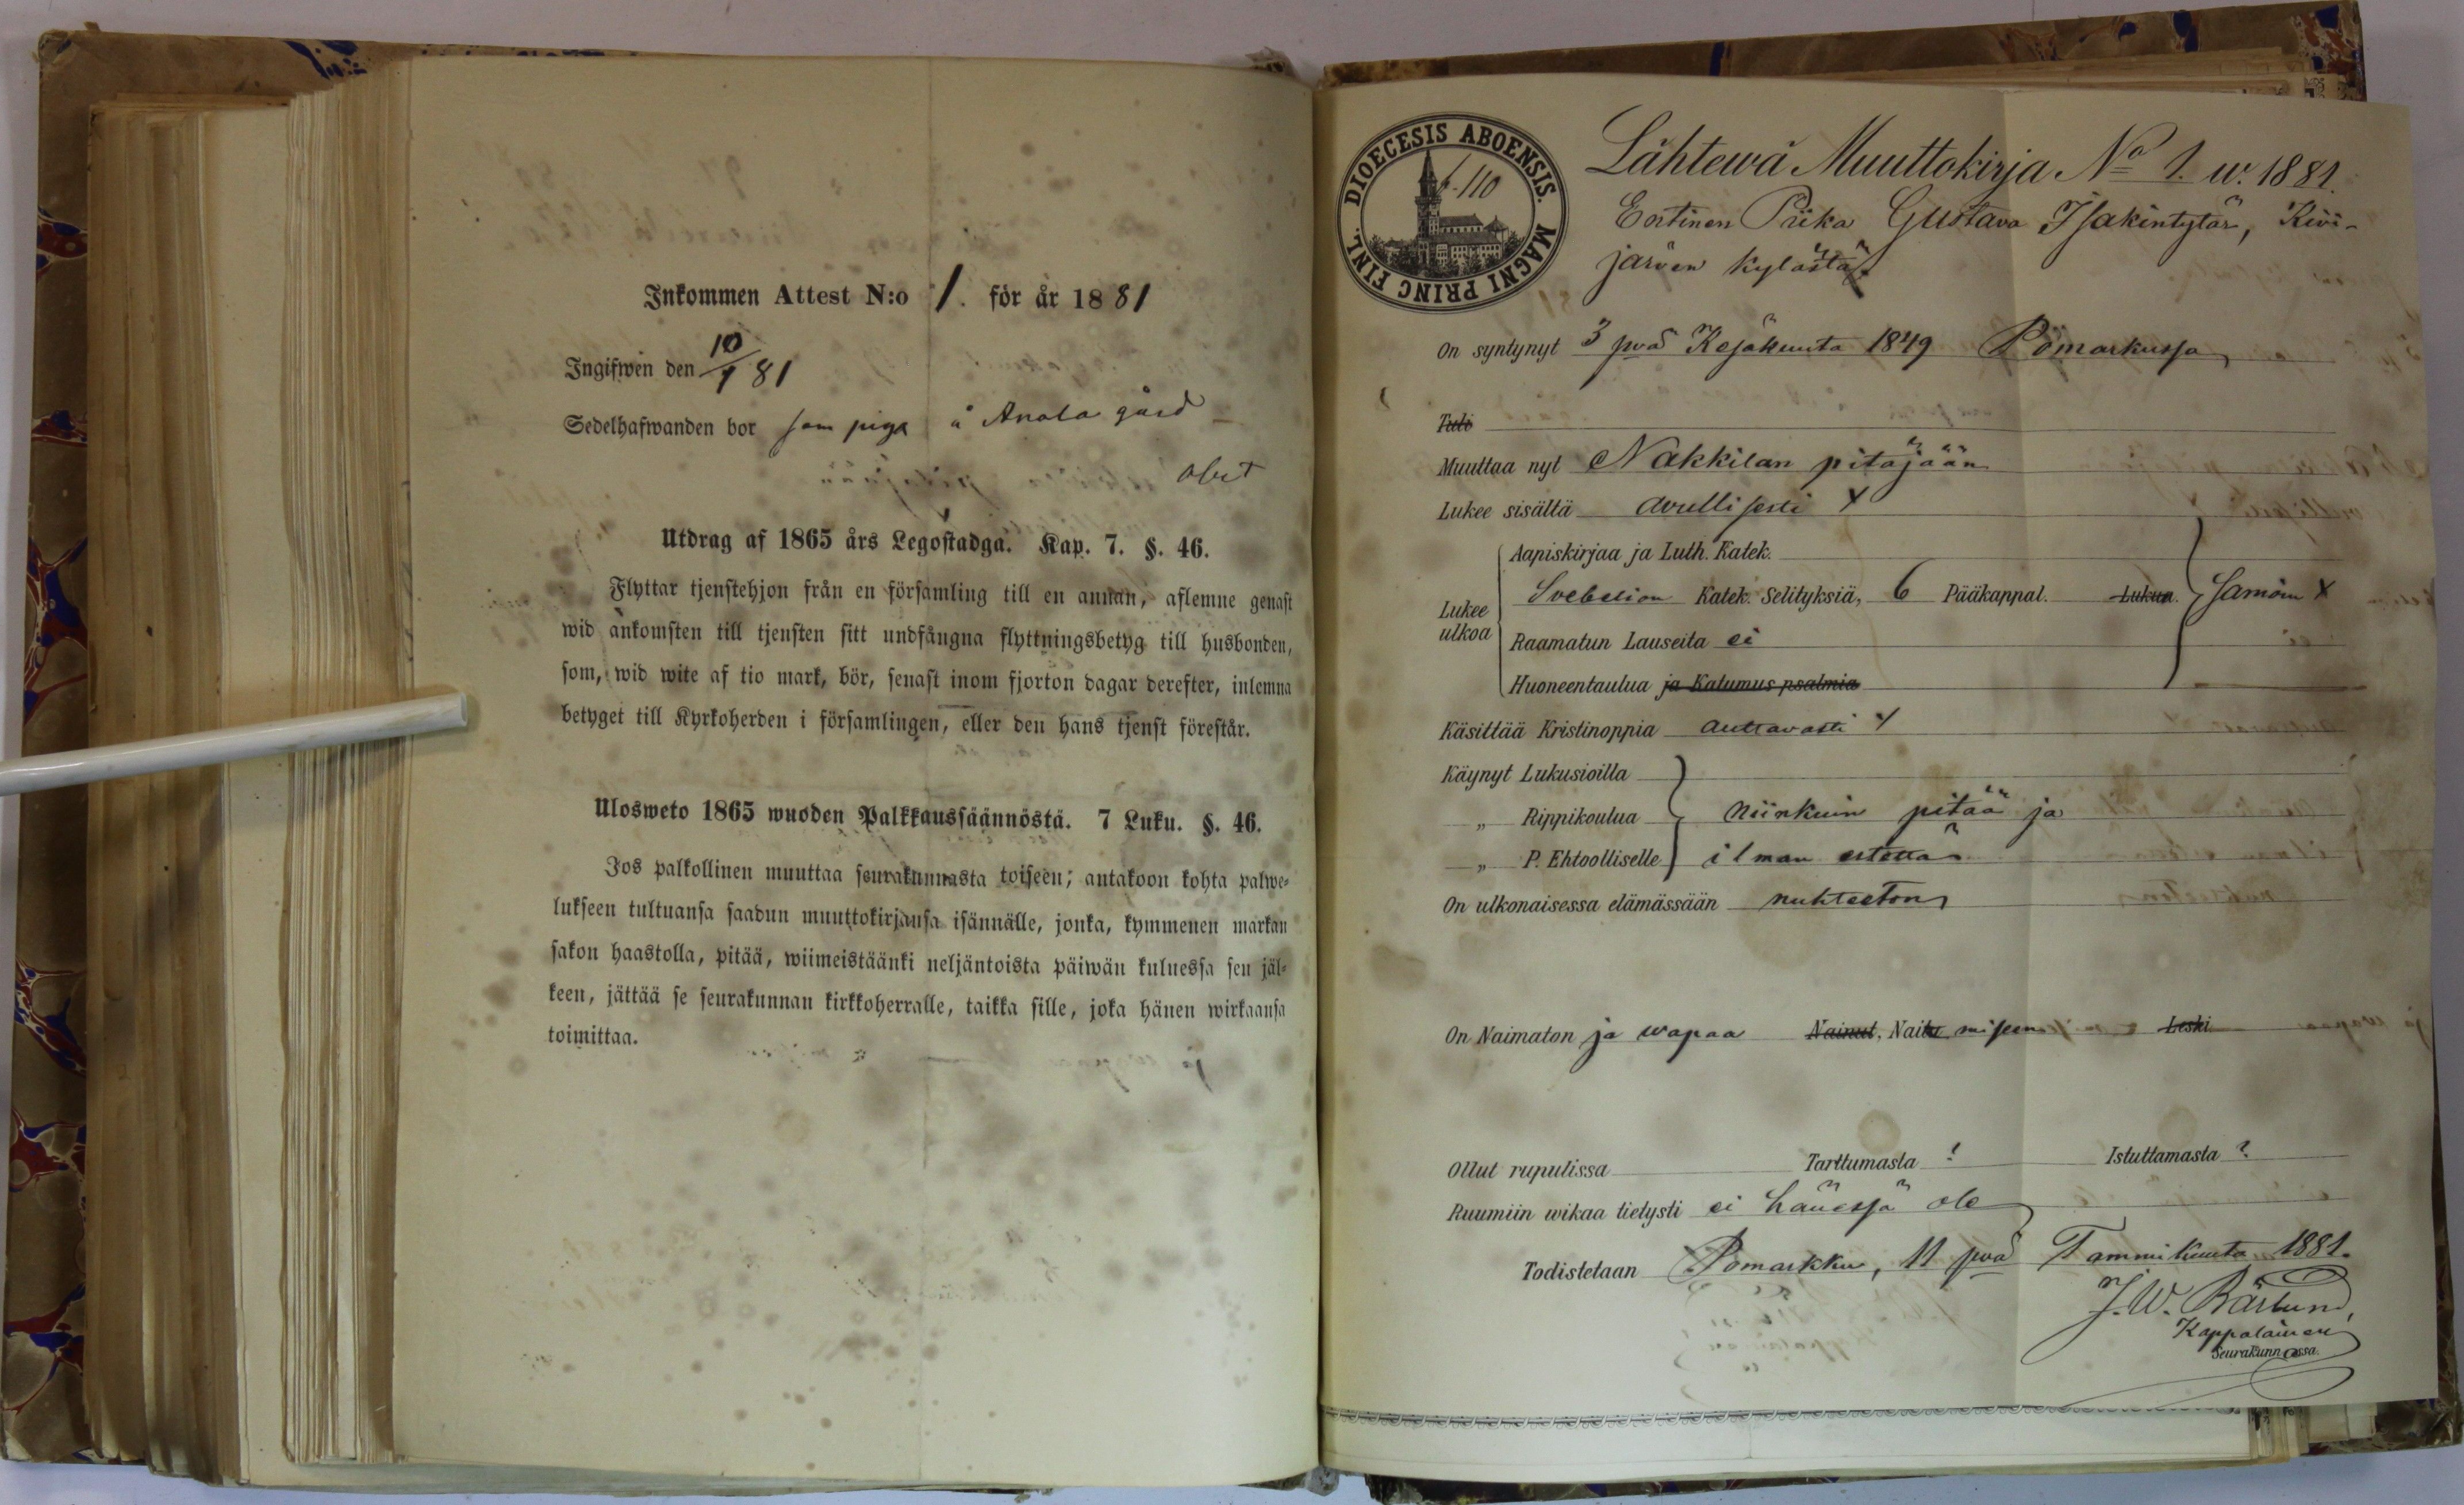 Inkommen Attest N:o 1. för år 1881
Ingifwen den 10/1 81
Sedelhafwanden bor som piga å Anola gård
Utdrag af 1865 års Legostadga. Kap. 7. §. 46.
Flyttar tjenstehjon från en församling till en annan, aflemne genast
wid ankomsten till tjensten sitt undfångna flyttningsbetyg till husbonden,
som, wid wite af tio mark, bör, senast inom fjorton dagar derefter, inlemna
betyget till Kyrkoherden i församlingen, eller den hans tjenst förestår.
Ulosweto 1865 wuoden Palkkaussäännöstä. 7 Luku. §. 46.
Jos palkollinen muuttaa seurakunnasta toiseen; antakoon kohta palwe-
lukseen tultuansa saadun muuttokirjansa isännälle, jonka, kymmenen markan
sakon haastolla, pitää, wiimeistäänki neljäntoista päiwän kuluessa sen jäl-
keen, jättää se seurakunnan kirkkoherralle, taikka sille, joka hänen wirkaansa
toimittaa.
DIOECESIS ABOENSIS. MAGNI PRINC FINL.
6-110
Lähtewä Muuttokirja No 1. w. 1881.
Entinen Piika Gustava Isakintytär, Kivi-
järven kylästä.
On syntynyt 3 pvä Kesäkuuta 1849 Pomarkussa
Tuli
Muuttaa nyt Nakkilan pitäjään
Lukee sisältä avullisesti +
Aapiskirjaa ja Luth. Katek.
Lukee ulkoa
Svebelion Katek. Selityksiä, 6 Pääkappal. Lukua. Samoin +
Raamatun Lauseita ei
Huoneentaulua ja Katumus psalmia
Käsittää Kristinoppia auttavasti +
Käynyt Lukusioilla
„ Rippikoulua niinkuin pitää ja
„ P. Ehtoolliselle ilman estettä
On ulkonaisessa elämässään nuhteeton
On Naimaton ja wapaa Nainut, Naimiseen Leski
Ollut rupulissa Tarttumasta ? Istuttamasta ?
Ruumiin wikaa tietysti ei hänessä ole
Todistetaan Pomarkku, 11 pvä Tammikuuta 1881.
J. W. Bärlund,
Kappalainen
Seurakunnassa.